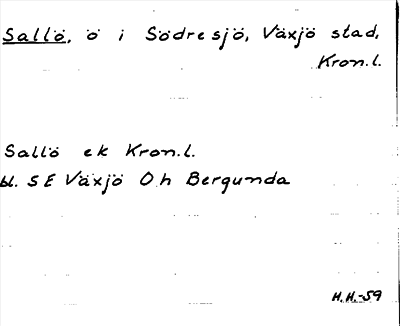 Sallö, ö i Södresjö, Växjö stad,
Kron.l.
Sallö ek Kron.l.
bl. SE Växjö O.h Bergunda
H.H.-59